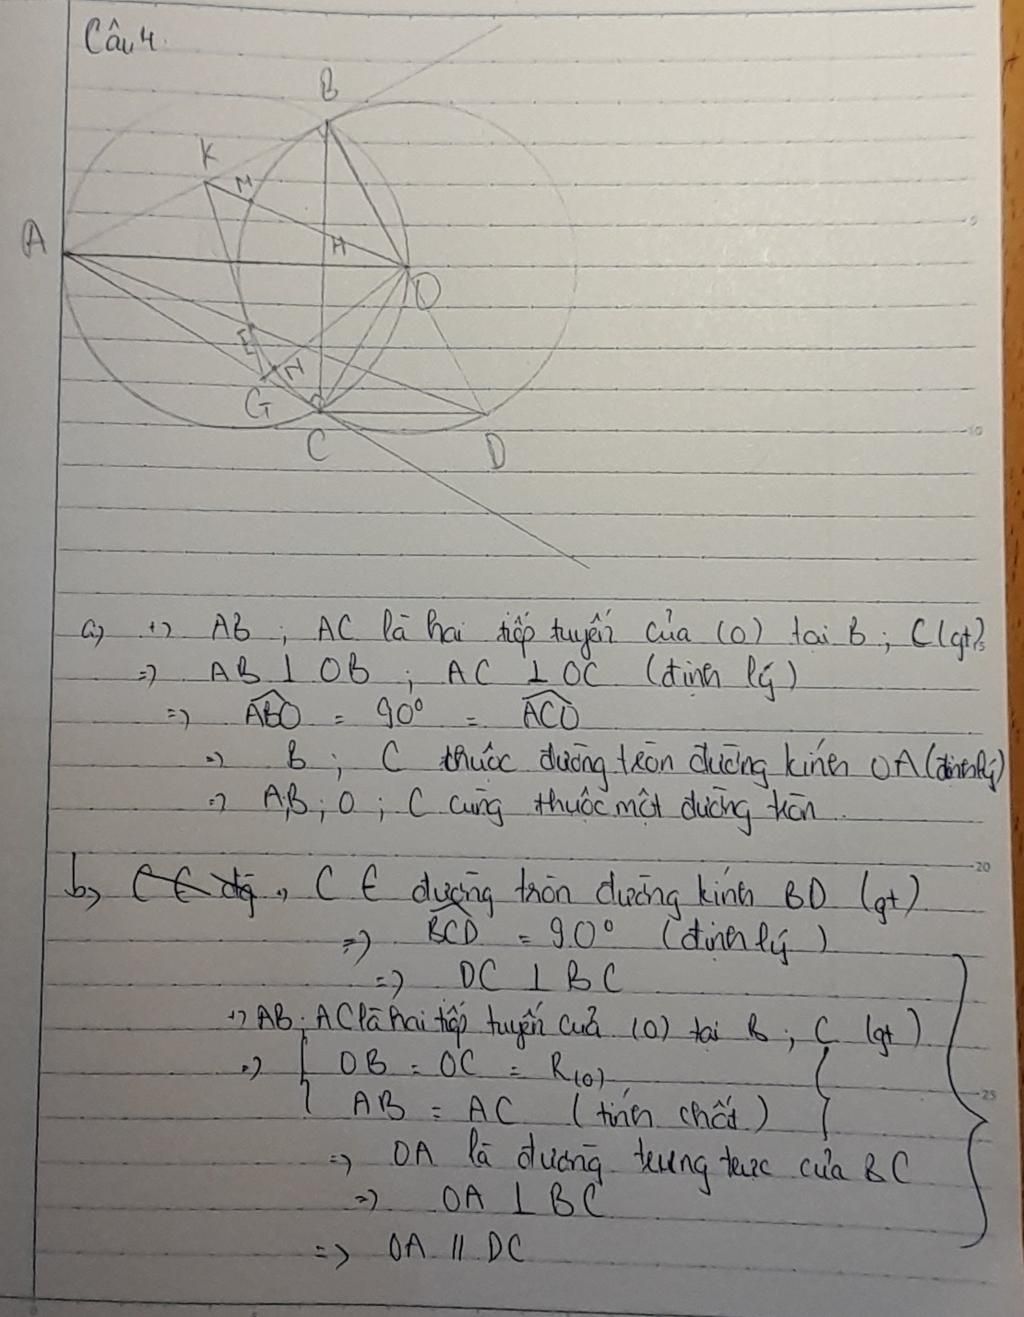 Câu 4.
B
K
M
A
H
O
E
N
G
C
D
5
10
a, +, AB ; AC là hai tiếp tuyến của (O) tại B ; C (gt)
=> AB ⊥ OB ; AC ⊥ OC (định lý)
=> ABO = 90° = ACO
=> B ; C thuộc đường tròn đường kính OA (định lý)
=> A,B ; O ; C cùng thuộc một đường tròn.
20
b, C ∈ đg , C ∈ đường tròn đường kính BD (gt)
=> BCD = 90° (định lý)
=> DC ⊥ BC
+, AB ; AC là hai tiếp tuyến của (O) tại B ; C (gt)
=> { OB = OC = R(O)
25
AB = AC (tính chất) }
=> OA là đường trung trực của BC
=> OA ⊥ BC
=> OA // DC